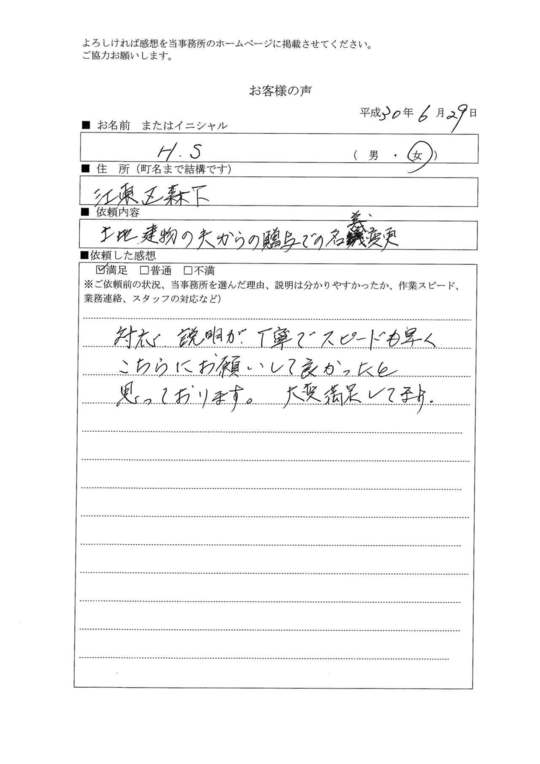 よろしければ感想を当事務所のホームページに掲載させてください。
ご協力お願いします。
お客様の声
平成30年6月29日
■ お名前　またはイニシャル
H.S　（ 男 ・ 女 ）
■ 住　所（町名まで結構です）
江東区森下
■ 依頼内容
土地建物の夫からの贈与での名義変更
■依頼した感想
☑満足 □普通 □不満
※ご依頼前の状況、当事務所を選んだ理由、説明は分かりやすかったか、作業スピード、
業務連絡、スタッフの対応など）
対応 説明が丁寧でスピードも早く
こちらにお願いして良かったと
思っております。 大変満足してます.